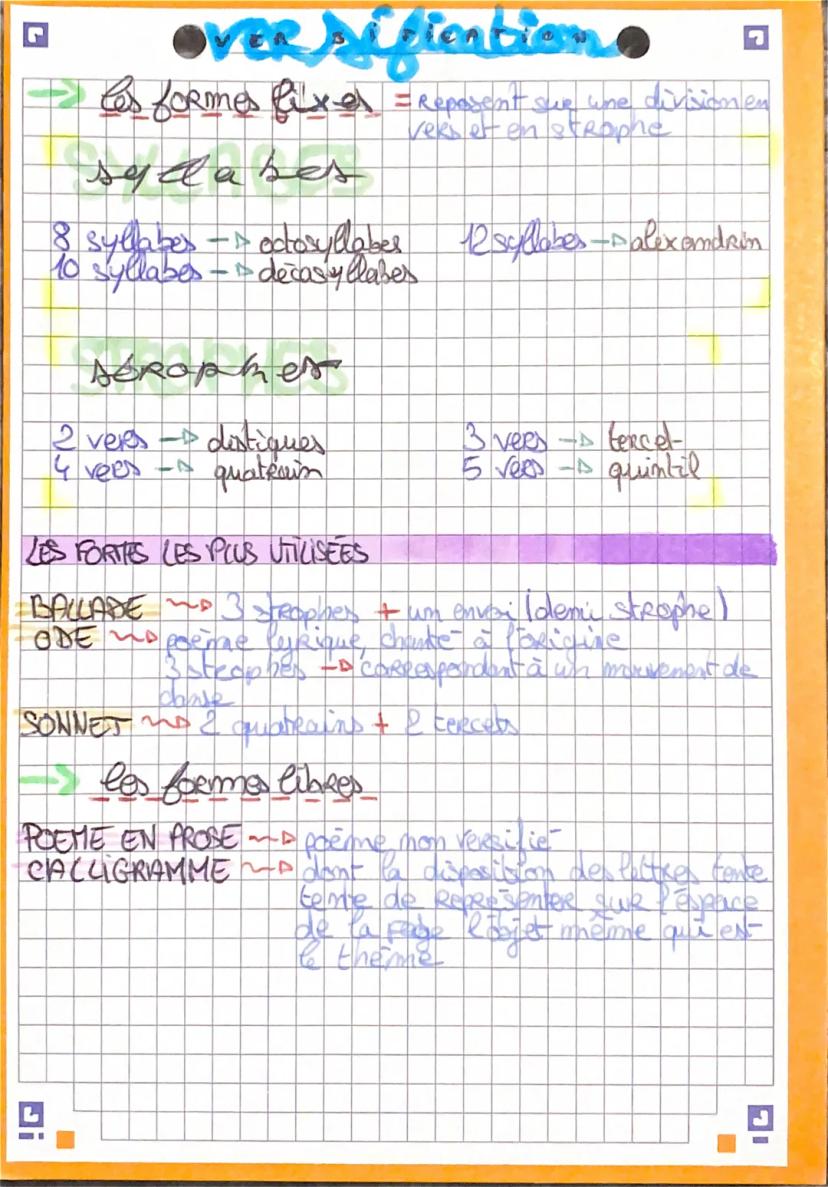 versification
VERSIFICATION
→ les formes fixes = Reposent sur une division en
vers et en strophe
SYLLABES
syllabes
8 syllabes → octosyllabes 12 syllabes → alexandrin
10 syllabes → décasyllabes
STROPHES
strophes
2 vers → distiques 3 vers → tercet
4 vers → quatrain 5 vers → quintil
LES FORMES LES PLUS UTILISÉES
BALLADE → 3 strophes + un envoi (demi strophe)
ODE → poème lyrique, chanté à l'origine
3 strophes → correspondant à un mouvement de
danse
SONNET → 2 quatrains + 2 tercets
→ les formes libres
POEME EN PROSE → poème non versifié
CALLIGRAMME → dont la disposition des lettres tente
tente de représenter sur l'espace
de la page l'objet même qui est
le thème